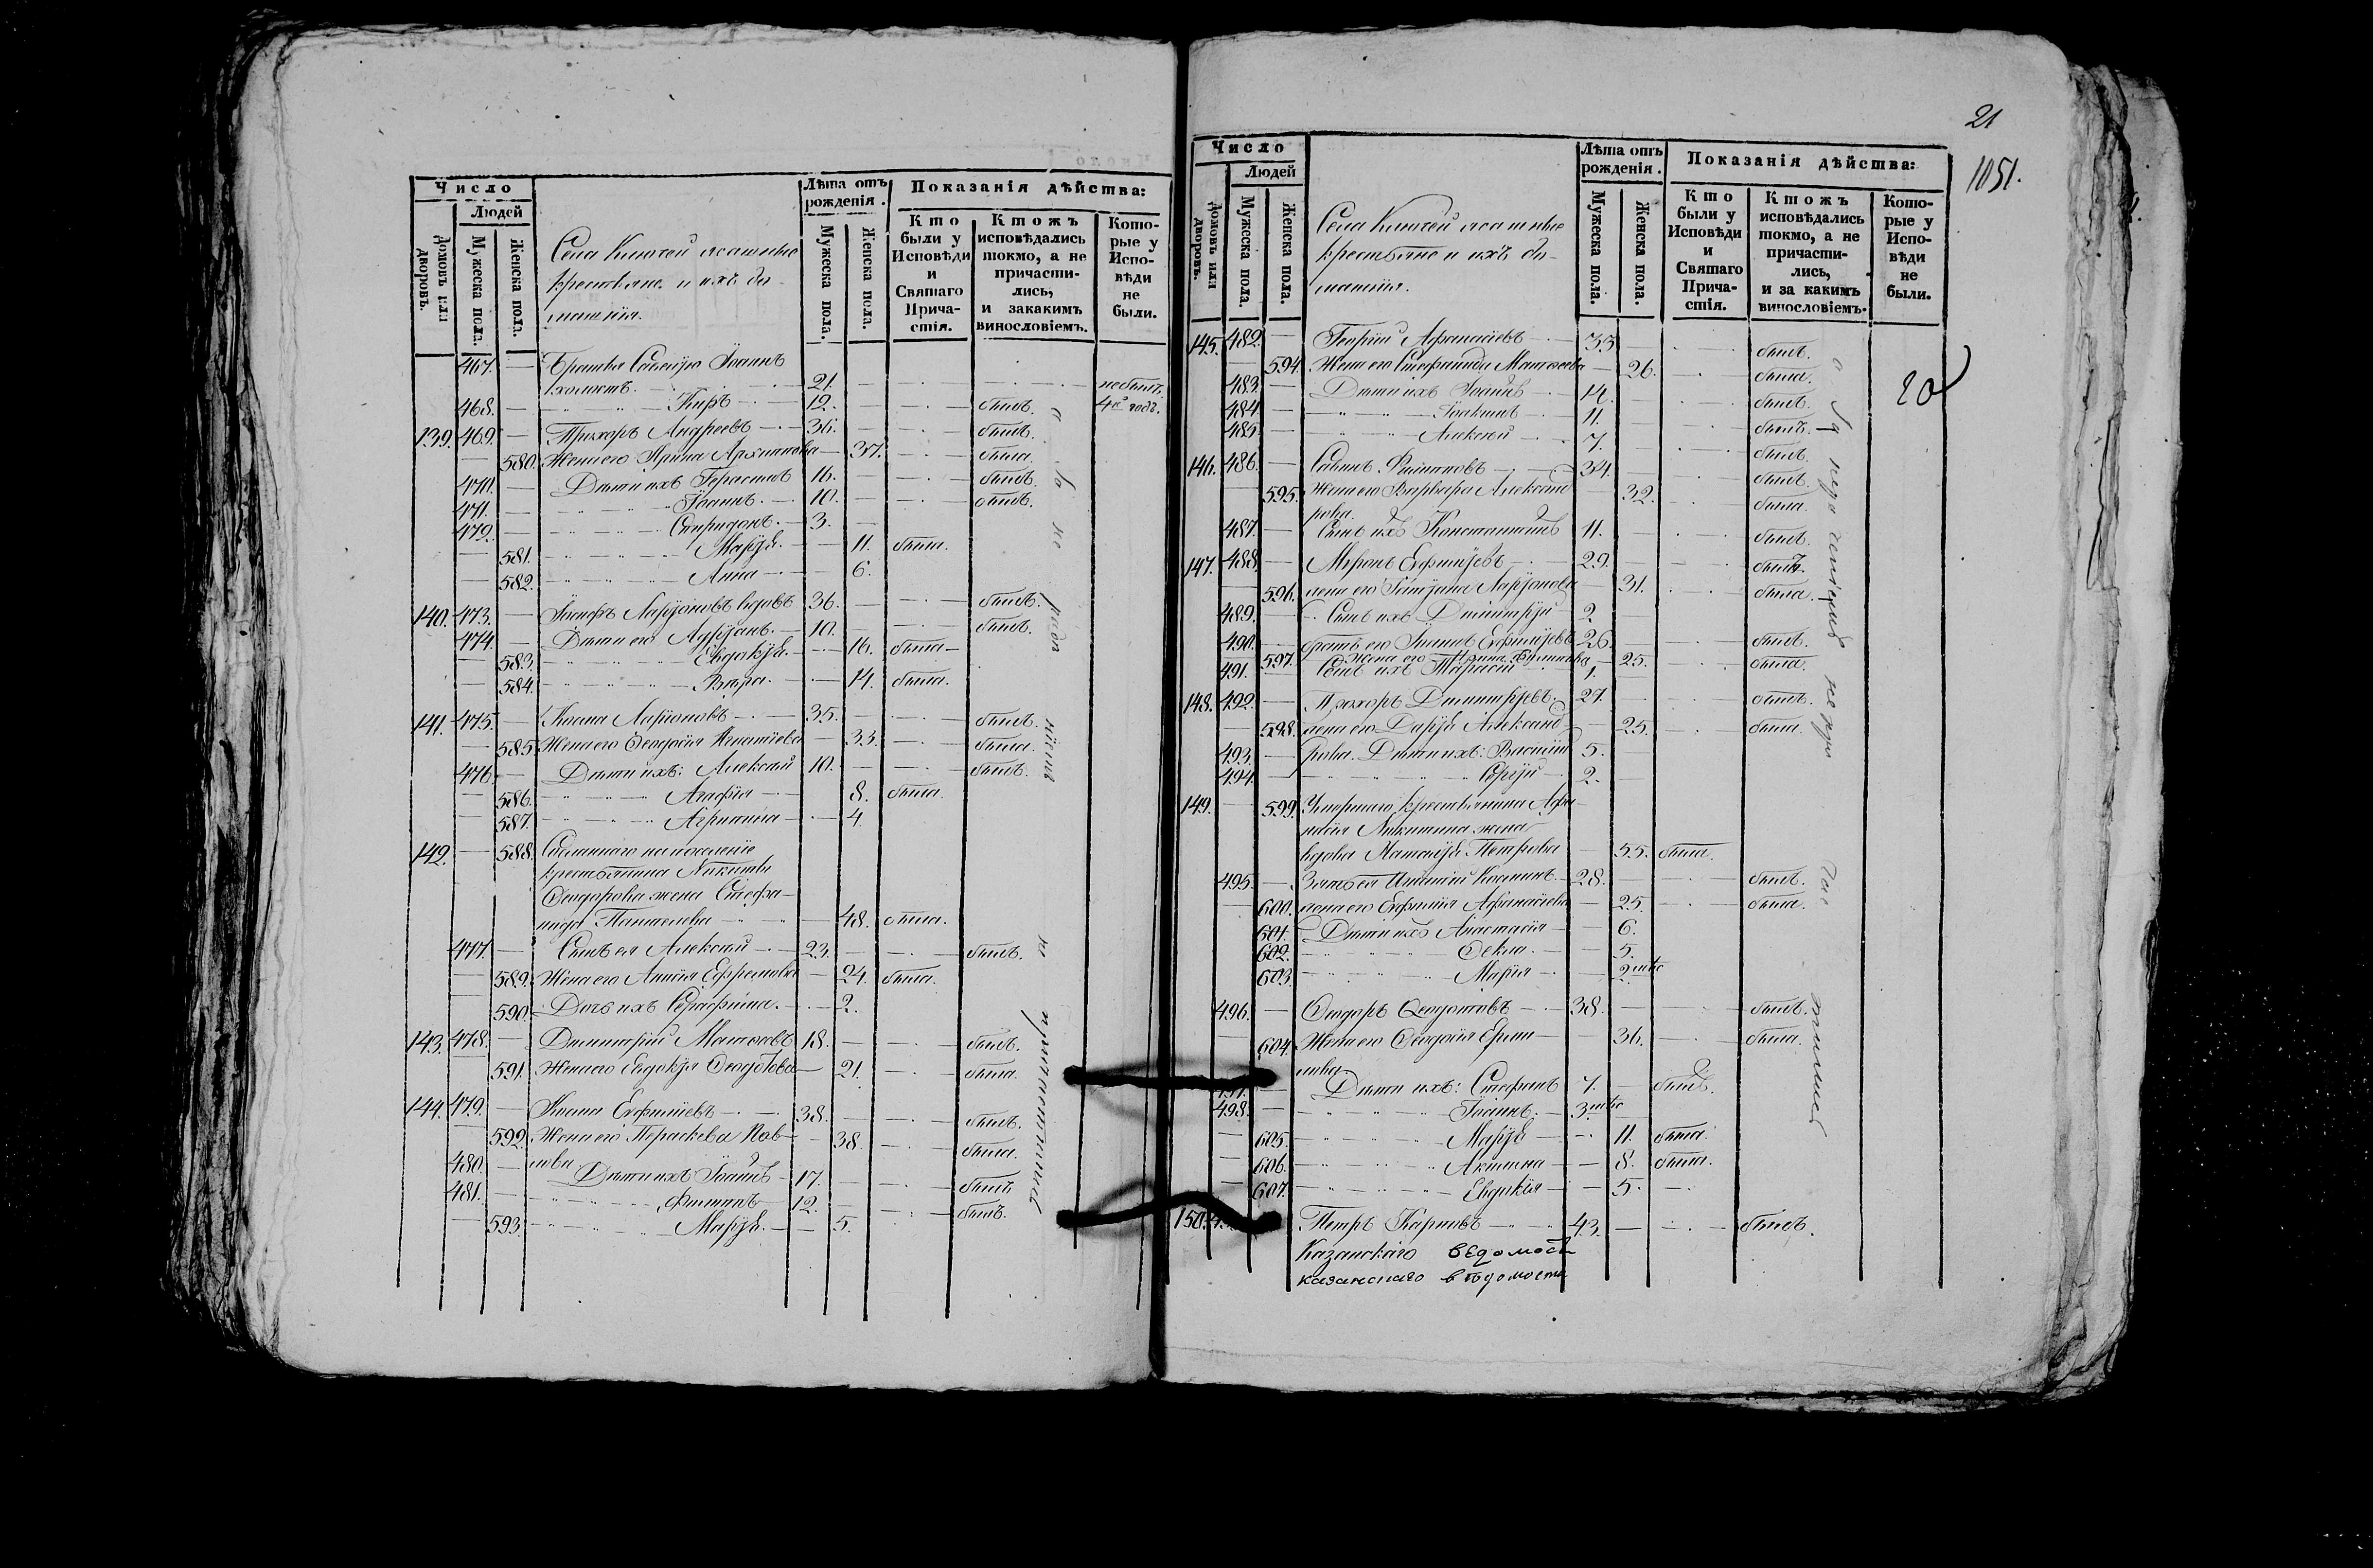 Число
Людей
Домовъ или дворовъ.
Мужеска пола.
Женска пола.
Села Ключей ясашные
крестьяне и ихъ до-
машнія.
Лѣта отъ рожденія.
Мужеска пола.
Женска пола.
Показанія дѣйства:
Кто были у Исповѣди и Святаго Прича-стія.
Ктожъ исповѣдались токмо, а не причасти-лись, и закакимъ винословіемъ.
Кото-рые у Испо-вѣди не были.
467. — Іоаннъ
холостъ. 21. не былъ
468. — Киръ — 12. былъ. 4й годъ.
139. 469. — Андреевъ — 36. былъ.
580. Жена его Ирина Архипова — 37. была.
470. — Дѣти ихъ Герасимъ 16. былъ.
471. — Іоаннъ. — 10. былъ.
472. — Спиридонъ. — 3.
581. Марія. — 11. была.
582. Анна — 6.
140. 473. — Іосифъ Ларіоновъ вдовъ 36. былъ.
474. — Дѣти его Адріанъ. — 10. былъ.
583. Евдокія. — 16. была —
584. Вѣра. — 14. была.
141. 475. — Косма Ларіоновъ — 35. былъ.
585. Жена его Ѳеодосія Игнатіева — 33. была.
476. — Дѣти ихъ: Алексѣй 10. былъ.
586. Агафія — 8. была.
587. Агрипина — 4.
142. — 588. Сосланнаго на поселеніе
крестьянина Никиты
Ѳеодорова жена Стефа-
нида Пантелеева — 48. была.
477. — Сынъ ея Алексѣй — 23. былъ.
589. Жена его Ефремова — 24. была.
590. Дочь ихъ Серафима. — 2.
143. 478. — Димитрій Матѳеевъ 18. былъ.
591. Жена его Евдокія Ѳеодотова — 21. была.
144. 479. — Косма Евфиміевъ — 38. былъ.
592. Жена его Параскева Пав- — 38. была.
лова
480. — Дѣти ихъ Іоаннъ — 17. былъ
481. — Филиппъ — 12. былъ.
593. Марія. — 5.
не причастились
21
1051.
Число
Людей
Домовъ или дворовъ.
Мужеска пола.
Женска пола.
Села Ключей ясашные
крестьяне и ихъ до-
машнія.
Лѣта отъ рожденія.
Мужеска пола.
Женска пола.
Показанія дѣйства:
Кто были у Исповѣди и Святаго Прича-стія.
Ктожъ исповѣдались токмо, а не причасти-лись, и за какимъ винословіемъ.
Кото-рые у Испо-вѣди не были.
145. 482. — Георгій Афанасіевъ — 33 былъ.
594. Жена его Стефанида Матѳеева — 26. была.
483. — Дѣти ихъ Іоаннъ — 14. былъ.
484. — Іоакимъ — 11. былъ.
485. — Алексѣй — 7. былъ.
146. 486. — Филиповъ — 34. былъ.
595. Жена его Варвара Александ- — 32. была.
рова.
487. — Сынъ ихъ Константинъ 11. былъ.
147. 488. — Миронъ Евфиміевъ — 29. былъ.
596. жена его Татіана Ларіонова — 31. была.
489. — Сынъ ихъ Димитрій — 2.
490. — братъ его Евфиміевъ 26. былъ.
597. жена его — 25. была.
491. — Сынъ ихъ 1.
148. 492. — Прохоръ Димитріевъ. — 27. былъ.
598. жена его Дарія Александ- — 25. была.
493. — рова. Дѣти ихъ: Василій 5.
494. — Сергій — 2.
149. — 599. Умершаго крестьянина Афа-
насія Никитина жена
вдова Петрова — 55. была.
495. — Зять ея Игнатій Косминъ. — 28. былъ.
600. жена его Евфимія Афанасіева — 25. была.
601. Дѣти ихъ Анастасія — 6.
602. Ѳекла. — 5.
603. Марія — 2 мѣс
496. — Ѳеодоръ Ѳеодотовъ — 38. былъ.
604. Жена его Ѳеодосія Ерми- — 36. была.
лова
497. — Дѣти ихъ: Стефанъ 7. былъ.
498. — Іоаннъ. — 3 мѣс
605. Марія — 11. была.
606. Акилина — 8. была.
607. Евдокія — 5.
150. Петръ Карповъ — 43. былъ.
Казанскаго ведомост
казанскаго вѣдомости